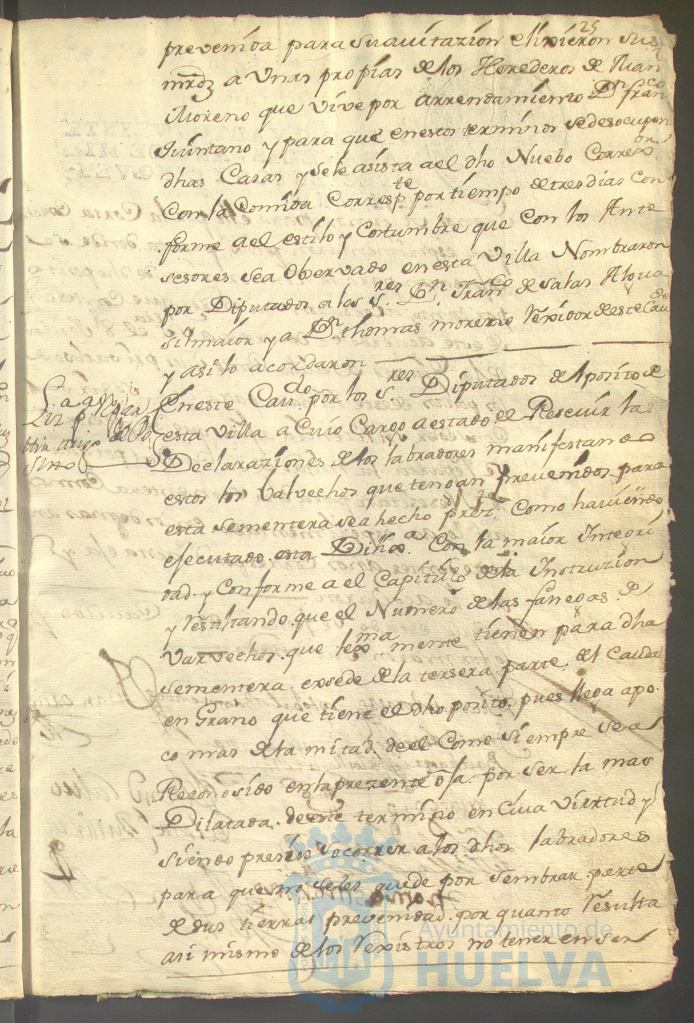 25
prevenida para su avitazion elixieron sus
mrdz a Unas propias de los Herederos de Dn Franco
Moreno que Vive por arrendamiento Dn Fran
Quintano y para que en estos terminos se desocupen
dhas Casas y se le asista a el dho Nuebo Correxor
Con la Comida Correspte por tiempo de tres dias con
forme a el estilo y Costumbre que con los Ante
sesores sea Observado en esta Villa Nombraron
por Diputados a los Sres Dn Franco de Salas Algua
sil maior y a Dn thomas moreno Rexidor de este Cavdo
y asi lo acordaron
En este Cavdo por los Sres Diputados del posito de
esta Villa a Cuio Cargo a estado el Rescivir las
Declaraziones de los labradores manifestando
estos los balvechos que tengan prevenidos para
esta sementera sea hecho preste Como haviendo
ejecutado esta Dilixa Con la maior Integri
dad y Conforme a el Capitulo de la Instruzion
y Resultando que el Numero de las fanegas de
Varvechos que lexmamente tienen para dha
Sementera exsede de la tersera parte del Caudal
en Grano que tiene el dho posito pues llega a po
co mas de la mitad de el Como siempre se a
Reconosido en la prezente dja por ser la mas
Dilatada de este termino en Cuia Virtud y
siendo presiso socorrer a los dhos labradores
para que no se les quede por sembrar parte
de sus tierras prevenidas por quanto Resulta
asi mismo de los Rexistros no tener en ser
Ayuntamiento de
HUELVA